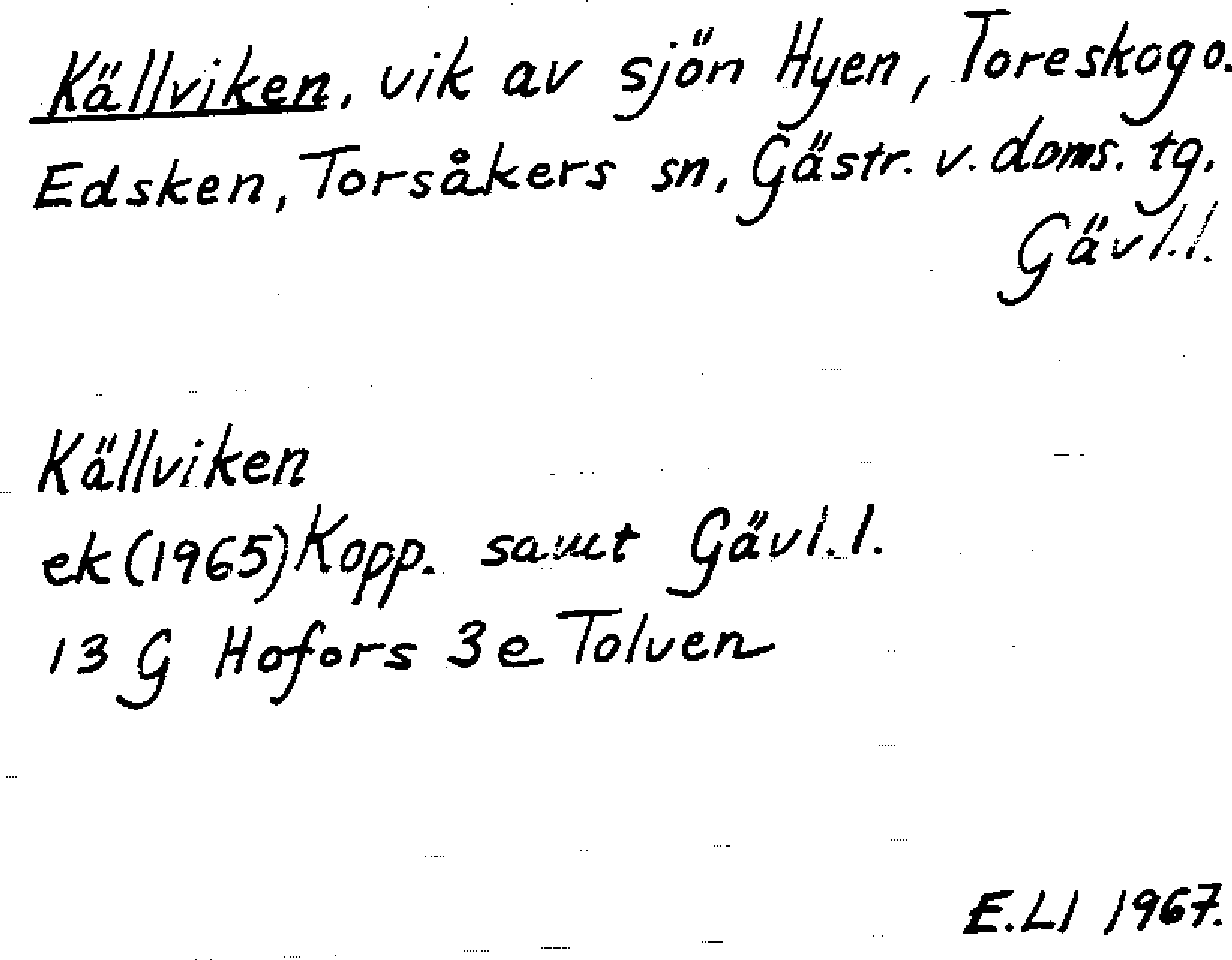 Källviken, vik av sjön Hyen, Toreskog o.
Edsken, Torsåkers sn, Gästr. v. doms. tg.
Gävl.l.
Källviken
ek (1965) Kopp. samt Gävl.l.
13 G Hofors 3e Tolven
E.Ll 1967.